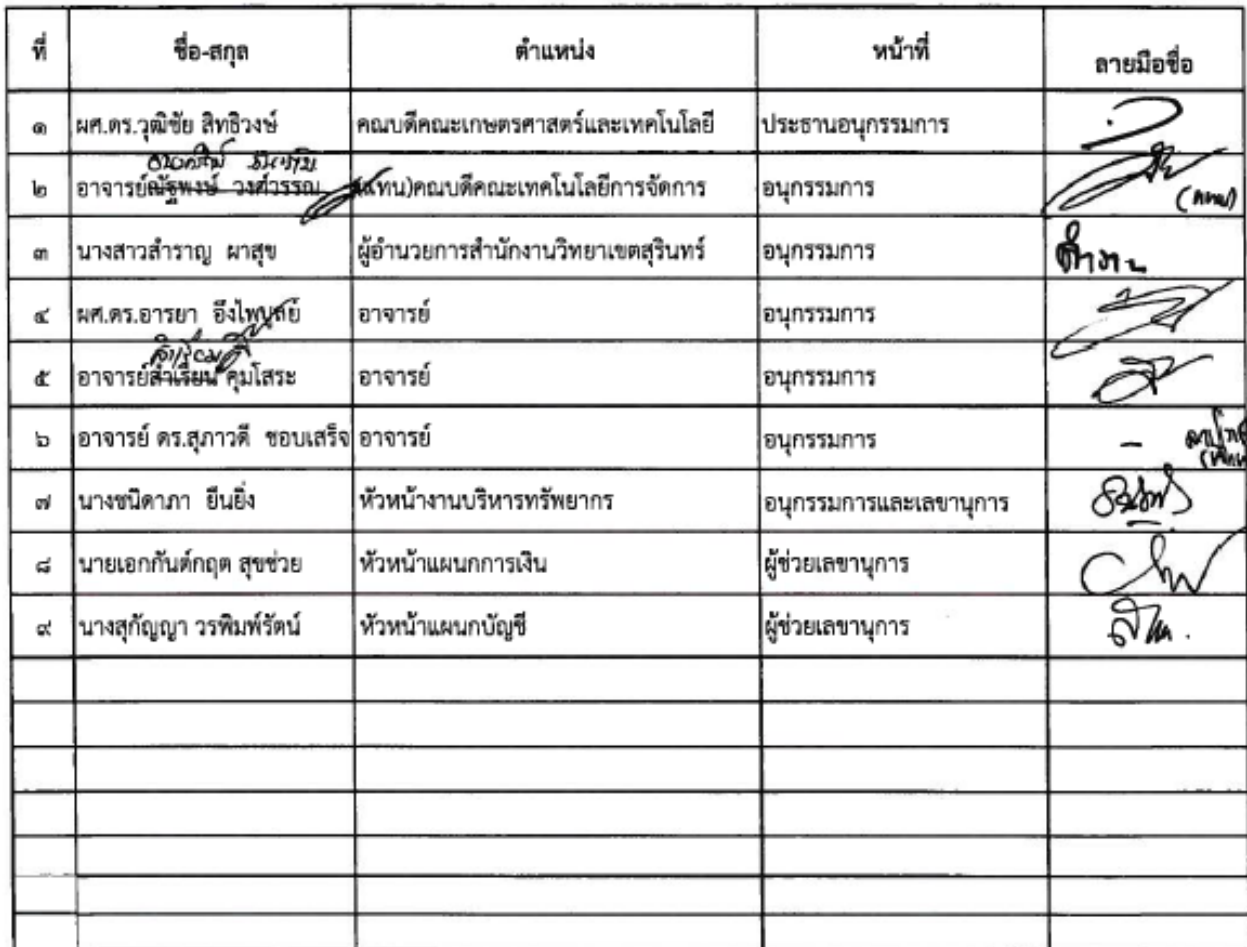 ที่ ชื่อ-สกุล ตำแหน่ง หน้าที่ ลายมือชื่อ
๑ ผศ.ดร.วุฒิชัย สิทธิวงษ์ คณบดีคณะเกษตรศาสตร์และเทคโนโลยี ประธานอนุกรรมการ
๒ อาจารย์ณัฐพงษ์ วงศ์วรรณ (แทน)คณบดีคณะเทคโนโลยีการจัดการ อนุกรรมการ (แทน)
๓ นางสาวสำราญ ผาสุข ผู้อำนวยการสำนักงานวิทยาเขตสุรินทร์ อนุกรรมการ สำราญ
๔ ผศ.ดร.อารยา อึงไพบูลย์ อาจารย์ อนุกรรมการ
๕ อาจารย์สำเรียน คุมโสระ อาจารย์ อนุกรรมการ
๖ อาจารย์ ดร.สุภาวดี ชอบเสร็จ อาจารย์ อนุกรรมการ -
๗ นางชนิดาภา ยืนยิ่ง หัวหน้างานบริหารทรัพยากร อนุกรรมการและเลขานุการ
๘ นายเอกกันต์กฤต สุขช่วย หัวหน้าแผนกการเงิน ผู้ช่วยเลขานุการ
๙ นางสุกัญญา วรพิมพ์รัตน์ หัวหน้าแผนกบัญชี ผู้ช่วยเลขานุการ